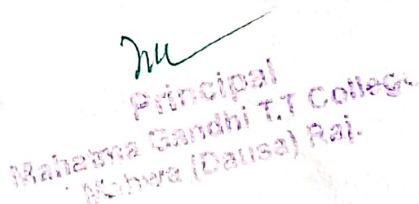 Principal
Mahatma Gandhi T.T College
Mahwa (Dausa) Raj.